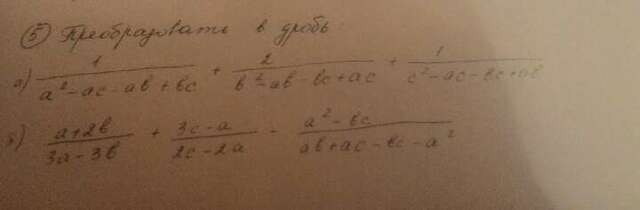 ⑤ Преобразовать в дробь:
а) 1/(a²-ac-ab+bc) + 2/(b²-ab-bc+ac) + 1/(c²-ac-bc+ab)
б) (a+2b)/(3a-3b) + (3c-a)/(2c-2a) - (a²-bc)/(ab+ac-bc-a²)